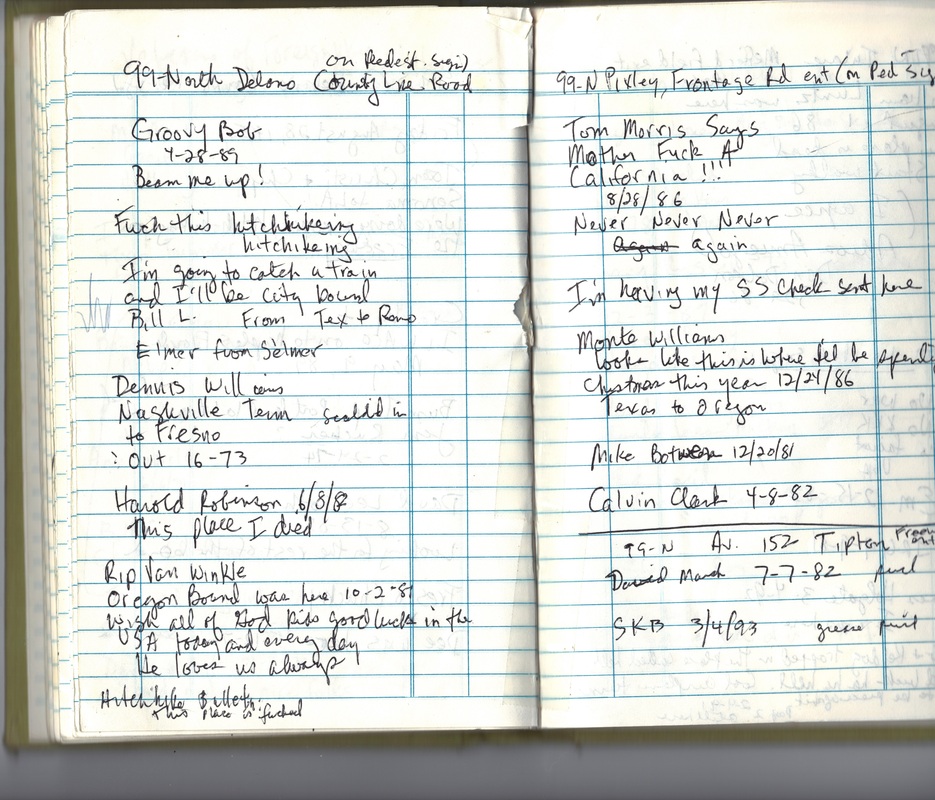 on Pedest. Sign)
99-North Delano (County Line Road
Groovy Bob
4-28-89
Beam me up!
Fuck this hitchhikeing
hitchikeing
I'm going to catch a train
and I'll be City bound
Bill L. From Tex to Reno
Elmer from Selmer
Dennis Williams
Nashville Tenn
to Fresno
: Out 16-73
Harold Robinson 6/8/82
This place I died
Rip Van Winkle
Oregon Bound was here 10-2-81
Wish all of God Kids good luck in the
USA today and every day
He loves us always
Hitchhike Bulletin:
This place is fucked
99-N Pixley, Frontage Rd ent (on Ped Sig
Tom Morris Says
Mother Fuck A
California !!!
8/28/86
Never Never Never
again
I'm having my SS Check sent here
Monte Williams
Looks like this is where I'll be spendi
Christmas this year 12/24/86
Texas to Oregon
Mike 12/20/81
Calvin Clark 4-8-82
99-N Av. 152 Tipton
David March 7-7-82
SKB 3/4/93 grease